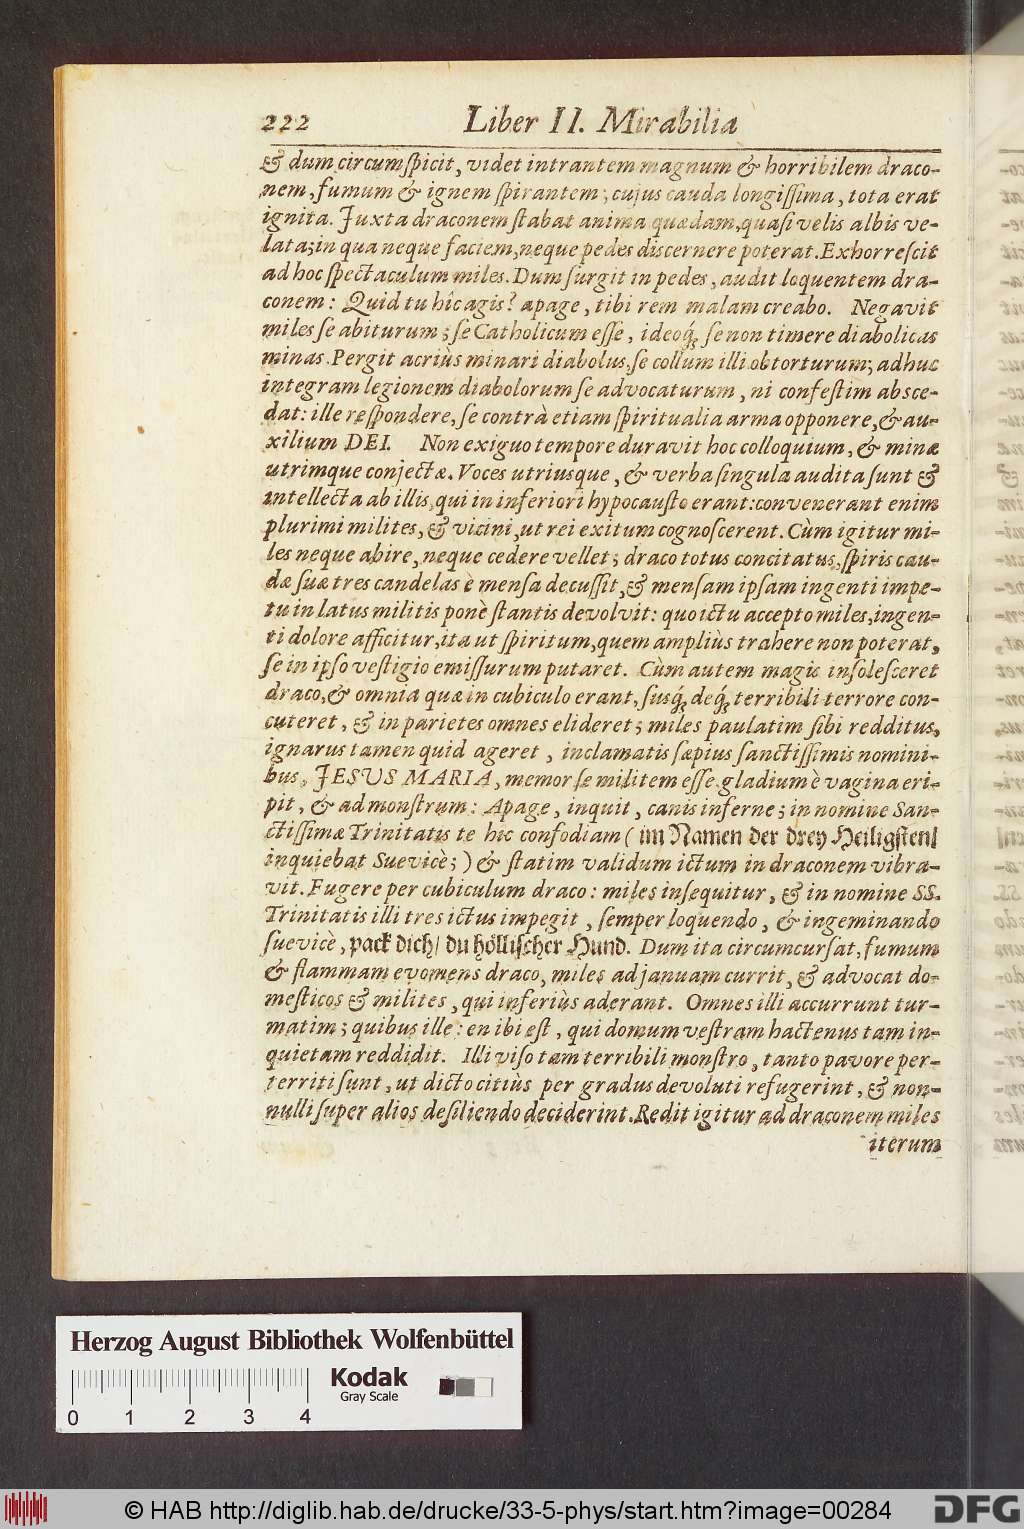 222 Liber II. Mirabilia
& dum circumſpicit, videt intrantem magnum & horribilem draco-
nem, fumum & ignem ſpirantem; cujus cauda longiſſima, tota erat
ignita. Juxta draconem ſtabat anima quædam, quaſi velis albis ve-
lata; in qua neque faciem, neque pedes diſcernere poterat. Exhorreſcit
ad hoc ſpectaculum miles. Dum ſurgit in pedes, audit loquentem dra-
conem: Quid tu hîc agis? apage, tibi rem malam creabo. Negavit
miles ſe abiturum; ſe Catholicum eſſe, ideoq́; ſe non timere diabolicas
minas. Pergit acriùs minari diabolus, ſe collum illi obtorturum; adhuc
integram legionem diabolorum ſe advocaturum, ni confeſtim abſce-
dat: ille reſpondere, ſe contrà etiam ſpiritualia arma opponere, & au-
xilium DEI. Non exiguo tempore duravit hoc colloquium, & minæ
utrimque conjectæ. Voces utriusque, & verba ſingula audita ſunt &
intellecta ab illis, qui in inferiori hypocauſto erant: convenerant enim
plurimi milites, & vicini, ut rei exitum cognoſcerent. Cùm igitur mi-
les neque abire, neque cedere vellet; draco totus concitatus, ſpiris cau-
dæ ſuæ tres candelas è menſa decuſſit, & menſam ipſam ingenti impe-
tu in latus militis ponè ſtantis devolvit: quo ictu accepto miles, ingen-
ti dolore afficitur, ita ut ſpiritum, quem ampliùs trahere non poterat,
ſe in ipſo veſtigio emiſſurum putaret. Cùm autem magis inſoleſceret
draco, & omnia quæ in cubiculo erant, ſusq́; deq́; terribili terrore con-
cuteret, & in parietes omnes elideret; miles paulatim ſibi redditus,
ignarus tamen quid ageret, inclamatis ſæpius ſanctiſſimis nomini-
bus, JESUS MARIA, memor ſe militem eſſe, gladium è vagina eri-
pit, & ad monſtrum: Apage, inquit, canis inferne; in nomine San-
ctiſſimæ Trinitatis te hic confodiam (im Namen der drey Heiligſten/
inquiebat Suevicè;) & ſtatim validum ictum in draconem vibra-
vit. Fugere per cubiculum draco: miles inſequitur, & in nomine SS.
Trinitatis illi tres ictus impegit, ſemper loquendo, & ingeminando
ſuevicè, pack dich/ du höllischer Hund. Dum ita circumcurſat, fumum
& flammam evomens draco, miles ad januam currit, & advocat do-
meſticos & milites, qui inferiùs aderant. Omnes illi accurrunt tur-
matim; quibus ille: en ibi eſt, qui domum veſtram hactenus tam in-
quietam reddidit. Illi viſo tam terribili monſtro, tanto pavore per-
territi ſunt, ut dicto citiùs per gradus devoluti refugerint, & non-
nulli ſuper alios deſiliendo deciderint. Redit igitur ad draconem miles
iterum
Herzog August Bibliothek Wolfenbüttel
Kodak
Gray Scale
0 1 2 3 4
© HAB http://diglib.hab.de/drucke/33-5-phys/start.htm?image=00284
DFG